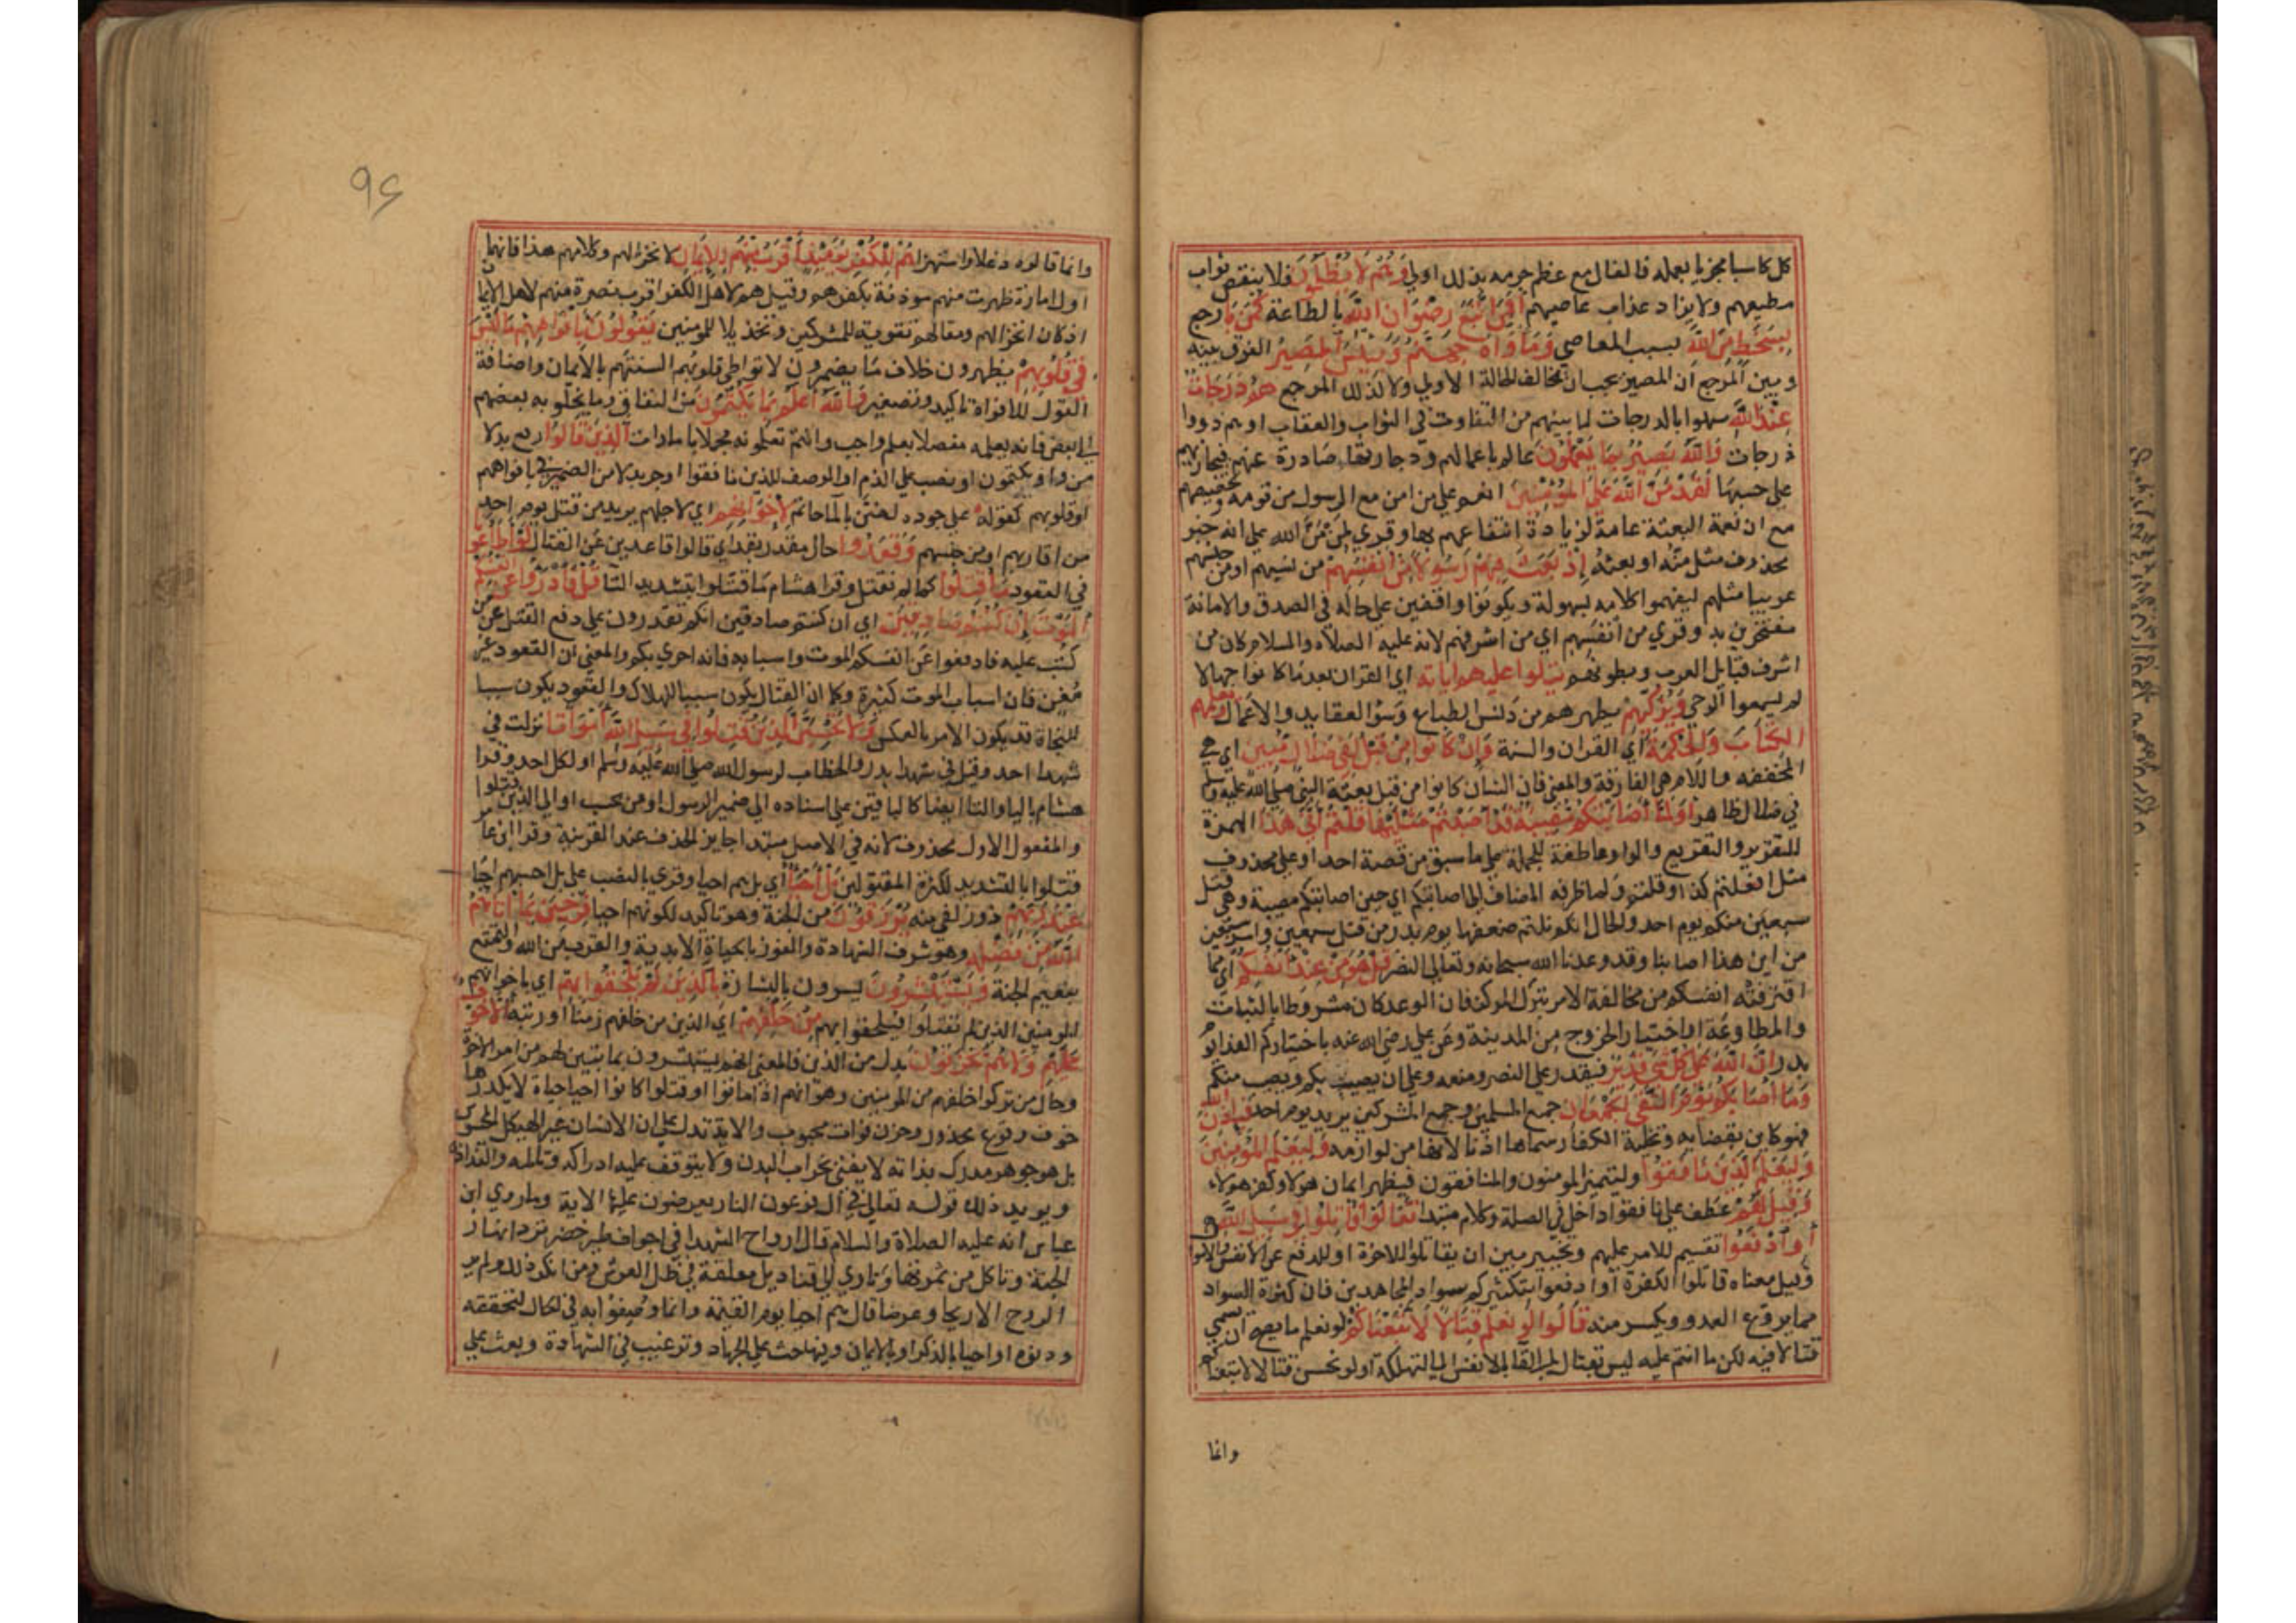 كل كاسبا مجزيا بعمله فالغال مع عظم جرمه بذلك اولي وَهُمْ لَا يُظْلَمُونَ فلا ينقص ثواب
مطيعهم ولا يزاد عذاب عاصيهم أَفَمَنِ اتَّبَعَ رِضْوَانَ اللَّهِ بالطاعة كَمَنْ بَاءَ رجع
بِسَخَطٍ مِنَ اللَّهِ بسبب المعاصي وَمَأْوَاهُ جَهَنَّمُ وَبِئْسَ الْمَصِيرُ الفرق بينه
وبين المرجع ان المصير يجب ان يخالف الحالة الاولي ولا كذلك المرجع هُمْ دَرَجَاتٌ
عِنْدَ اللَّهِ شبهوا بالدرجات لما بينهم من التفاوت في الثواب والعقاب او هم ذووا
درجات وَاللَّهُ بَصِيرٌ بِمَا يَعْمَلُونَ عالم باعمالهم ودرجاتها صادرة عنهم فيجازيهم
علي حسبها لَقَدْ مَنَّ اللَّهُ عَلَى الْمُؤْمِنِينَ انعم علي من امن مع الرسول من قومه وتخصيصهم
مع ان نعمة البعثة عامة لزيادة انتفاعهم بها وقري لمن مَنِّ الله علي انه خبر
محذوف مثل منّه او بعثه إِذْ بَعَثَ فِيهِمْ رَسُولًا مِنْ أَنْفُسِهِمْ من نسبهم او من جنسهم
عربيا مثلهم ليفهموا كلامه بسهولة ويكونوا واقفين علي حاله في الصدق والامانة
مفتخرين به وقري من أنفَسِهم اي من اشرفهم لانه عليه الصلاه والسلام كان من
اشرف قبايل العرب وبطونهم يتلوا عليهم اياته اي القران بعدما كانوا جهالا
لم يسمعوا الوحي وَيُزَكِّيهِمْ يطهرهم من دنس الطباع وسوء العقايد والاعمال ويعلمهم
الْكِتَابَ وَالْحِكْمَةَ اي القران والسنة وَإِنْ كَانُوا مِنْ قَبْلُ لَفِي ضَلَالٍ مُبِينٍ ان هي
المخففه واللام هي الفارقة والمعني فان الشان كانوا من قبل بعثة النبي صلي الله عليه وسلم
في ضلال ظاهر أَوَلَمَّا أَصَابَتْكُمْ مُصِيبَةٌ قَدْ أَصَبْتُمْ مِثْلَيْهَا قُلْتُمْ أَنَّى هَذَا الهمزة
للتقرير والتقريع والواو عاطفة للجملة علي ما سبق من قصة احد او علي محذوف
مثل افعلتم كذا وقلتم ولما ظرفه المضاف الي اصابتكم اي حين اصابتكم مصيبة وهي قتل
سبعين منكم يوم احد والحال انكم نلتم ضعفها يوم بدر من قتل سبعين واسر سبعين
من اين هذا اصابنا وقد وعدنا الله سبحانه وتعالي النصر قُلْ هُوَ مِنْ عِنْدِ أَنْفُسِكُمْ اي مما
اقترفته انفسكم من مخالفة الامر بترك المركز فان الوعد كان مشروطا بالثبات
والمطاوعة او اختيار الخروج من المدينة وعن علي رضي الله عنه باختياركم الفدا يوم
بدر إِنَّ اللَّهَ عَلَى كُلِّ شَيْءٍ قَدِيرٌ فيقدر علي النصر ومنعه وعلي ان يصيب بكم ويصيب منكم
وَمَا أَصَابَكُمْ يَوْمَ الْتَقَى الْجَمْعَانِ جمع المسلمين وجمع المشركين يريد يوم احد فَبِإِذْنِ اللَّهِ
فهو كاين بقضايه وتخلية الكفار سماها اذنا لانها من لوازمه وَلِيَعْلَمَ الْمُؤْمِنِينَ
وَلِيَعْلَمَ الَّذِينَ نَافَقُوا وليتميز المومنون والمنافقون فيظهر ايمان هولا وكفر هولاء
وَقِيلَ لَهُمْ عطف علي نافقوا داخل في الصلة وكلام مبتدا تَعَالَوْا قَاتِلُوا فِي سَبِيلِ اللَّهِ
أَوِ ادْفَعُوا تقسيم للامر عليهم وتخيير بين ان يقاتلوا للاخرة او للدفع عن الانفس والاموال
وقيل معناه قاتلوا الكفرة او ادفعوا بتكثيركم سواد المجاهدين فان كثرة السواد
مما يروع العدو ويكسر منه قَالُوا لَوْ نَعْلَمُ قِتَالًا لَاتَّبَعْنَاكُمْ لو نعلم ما يصح ان يسمي
قتالا فيه لكن ما انتم عليه ليس بقتال بل القا بالانفس الي التهلكة او لو نحسن قتالا لاتبعناكم
وانما
96
وانما قالوه دغلا واستهزا هُمْ لِلْكُفْرِ يَوْمَئِذٍ أَقْرَبُ مِنْهُمْ لِلْإِيمَانِ لانخزالهم وكلامهم هذا فانهما
اول امارة ظهرت منهم موذنة بكفرهم وقيل هم لاهل الكفر اقرب نصرة منهم لاهل الايمان
اذ كان انخزالهم ومقالهم تقوية للمشركين وتخذيلا للمومنين يَقُولُونَ بِأَفْوَاهِهِمْ مَا لَيْسَ
فِي قُلُوبِهِمْ يظهرون خلاف ما يضمرون لا تواطي قلوبهم السنتهم بالايمان واضافة
القول للافواة تاكيد وتصغير وَاللَّهُ أَعْلَمُ بِمَا يَكْتُمُونَ من النفاق وما يخلوا به بعضهم
الي بعض فانه يعلمه مفصلا بعلم واجب وانتم تعلمونه مجملا بامارات الَّذِينَ قَالُوا رفع بدلا
من واو يكتمون او نصب علي الذم او الوصف للذين نافقوا او جر بدلا من الضمير في بافواههم
او قلوبهم كقوله علي جوده لضن بالما حاتم لِإِخْوَانِهِمْ اي لاجلهم يريد من قتل يوم احد
من اقاربهم او من جنسهم وَقَعَدُوا حال مقدر بقد اي قالوا قاعدين عن القتال لَوْ أَطَاعُونَا
في القعود مَا قُتِلُوا كما لم نقتل وقرا هشام ما قتلوا بتشديد التا قُلْ فَادْرَءُوا عَنْ أَنْفُسِكُمُ
الْمَوْتَ إِنْ كُنْتُمْ صَادِقِينَ اي ان كنتم صادقين انكم تقدرون علي دفع القتل عن من
كتب عليه فادفعوا عن انفسكم الموت واسبابه فانه احري بكم والمعني ان القعود غير
مغن فان اسباب الموت كثيرة وكما ان القتال يكون سببا للهلاك والقعود يكون سببا
للنجاة قد يكون الامر بالعكس وَلَا تَحْسَبَنَّ الَّذِينَ قُتِلُوا فِي سَبِيلِ اللَّهِ أَمْوَاتًا نزلت في
شهدا احد وقيل في شهدا بدر والخطاب لرسول الله صلي الله عليه وسلم او لكل احد وقرا
هشام باليا والتا ايضا كالباقين علي اسناده الي ضمير الرسول او من يحسب او الي الذين قتلوا
والمفعول الاول محذوف لانه في الاصل مبتدا جايز الحذف عند القرينة وقرا ابن عامر
قتلوا بالتشديد لكثرة المقتولين بَلْ أَحْيَاءٌ اي بل هم احيا وقري بالنصب علي بل احسبهم احيا
عِنْدَ رَبِّهِمْ ذوو زلفي منه يُرْزَقُونَ من الجنة وهو تاكيد لكونهم احيا فَرِحِينَ بِمَا آتَاهُمُ
اللَّهُ مِنْ فَضْلِهِ وهو شرف الشهادة والفوز بالحياة الابدية والقرب من الله والتمتع
بنعيم الجنة وَيَسْتَبْشِرُونَ يسرون بالبشارة بِالَّذِينَ لَمْ يَلْحَقُوا بِهِمْ اي باخوانهم
المومنين الذين لم يقتلوا فيلحقوا بهم مِنْ خَلْفِهِمْ اي الذين من خلفهم زمنا او رتبة أَلَّا خَوْفٌ
عَلَيْهِمْ وَلَا هُمْ يَحْزَنُونَ بدل من الذين والمعني انهم يستبشرون بما تبين لهم من امر الاخرة
وحال من تركوا خلفهم من المومنين وهو انهم اذا ماتوا او قتلوا كانوا احيا حياة لا يكدرها
خوف وقوع محذور وحزن فوات محبوب والاية تدل علي ان الانسان غير الهيكل المحسوس
بل هو جوهر مدرك بذاته لا يفني بخراب البدن ولا يتوقف عليه ادراكه وتالمه والتذاذه
ويويد ذلك قوله تعالي في ال فرعون النار يعرضون عليها الاية وما روي ابن
عباس انه عليه الصلاة والسلام قال ارواح الشهدا في اجواف طير خضر ترد انهار
الجنة وتاكل من ثمرتها وتاوي الي قناديل معلقة في ظل العرش ومن انكر ذلك ولم ير
الروح الا ريحا وعرضا قال هم احيا يوم القيمة وانما وصفوا به في الحال لتحققه
ودنوه او احيا بالذكر او بالايمان وفيها حث علي الجهاد وترغيب في الشهادة وبعث علي